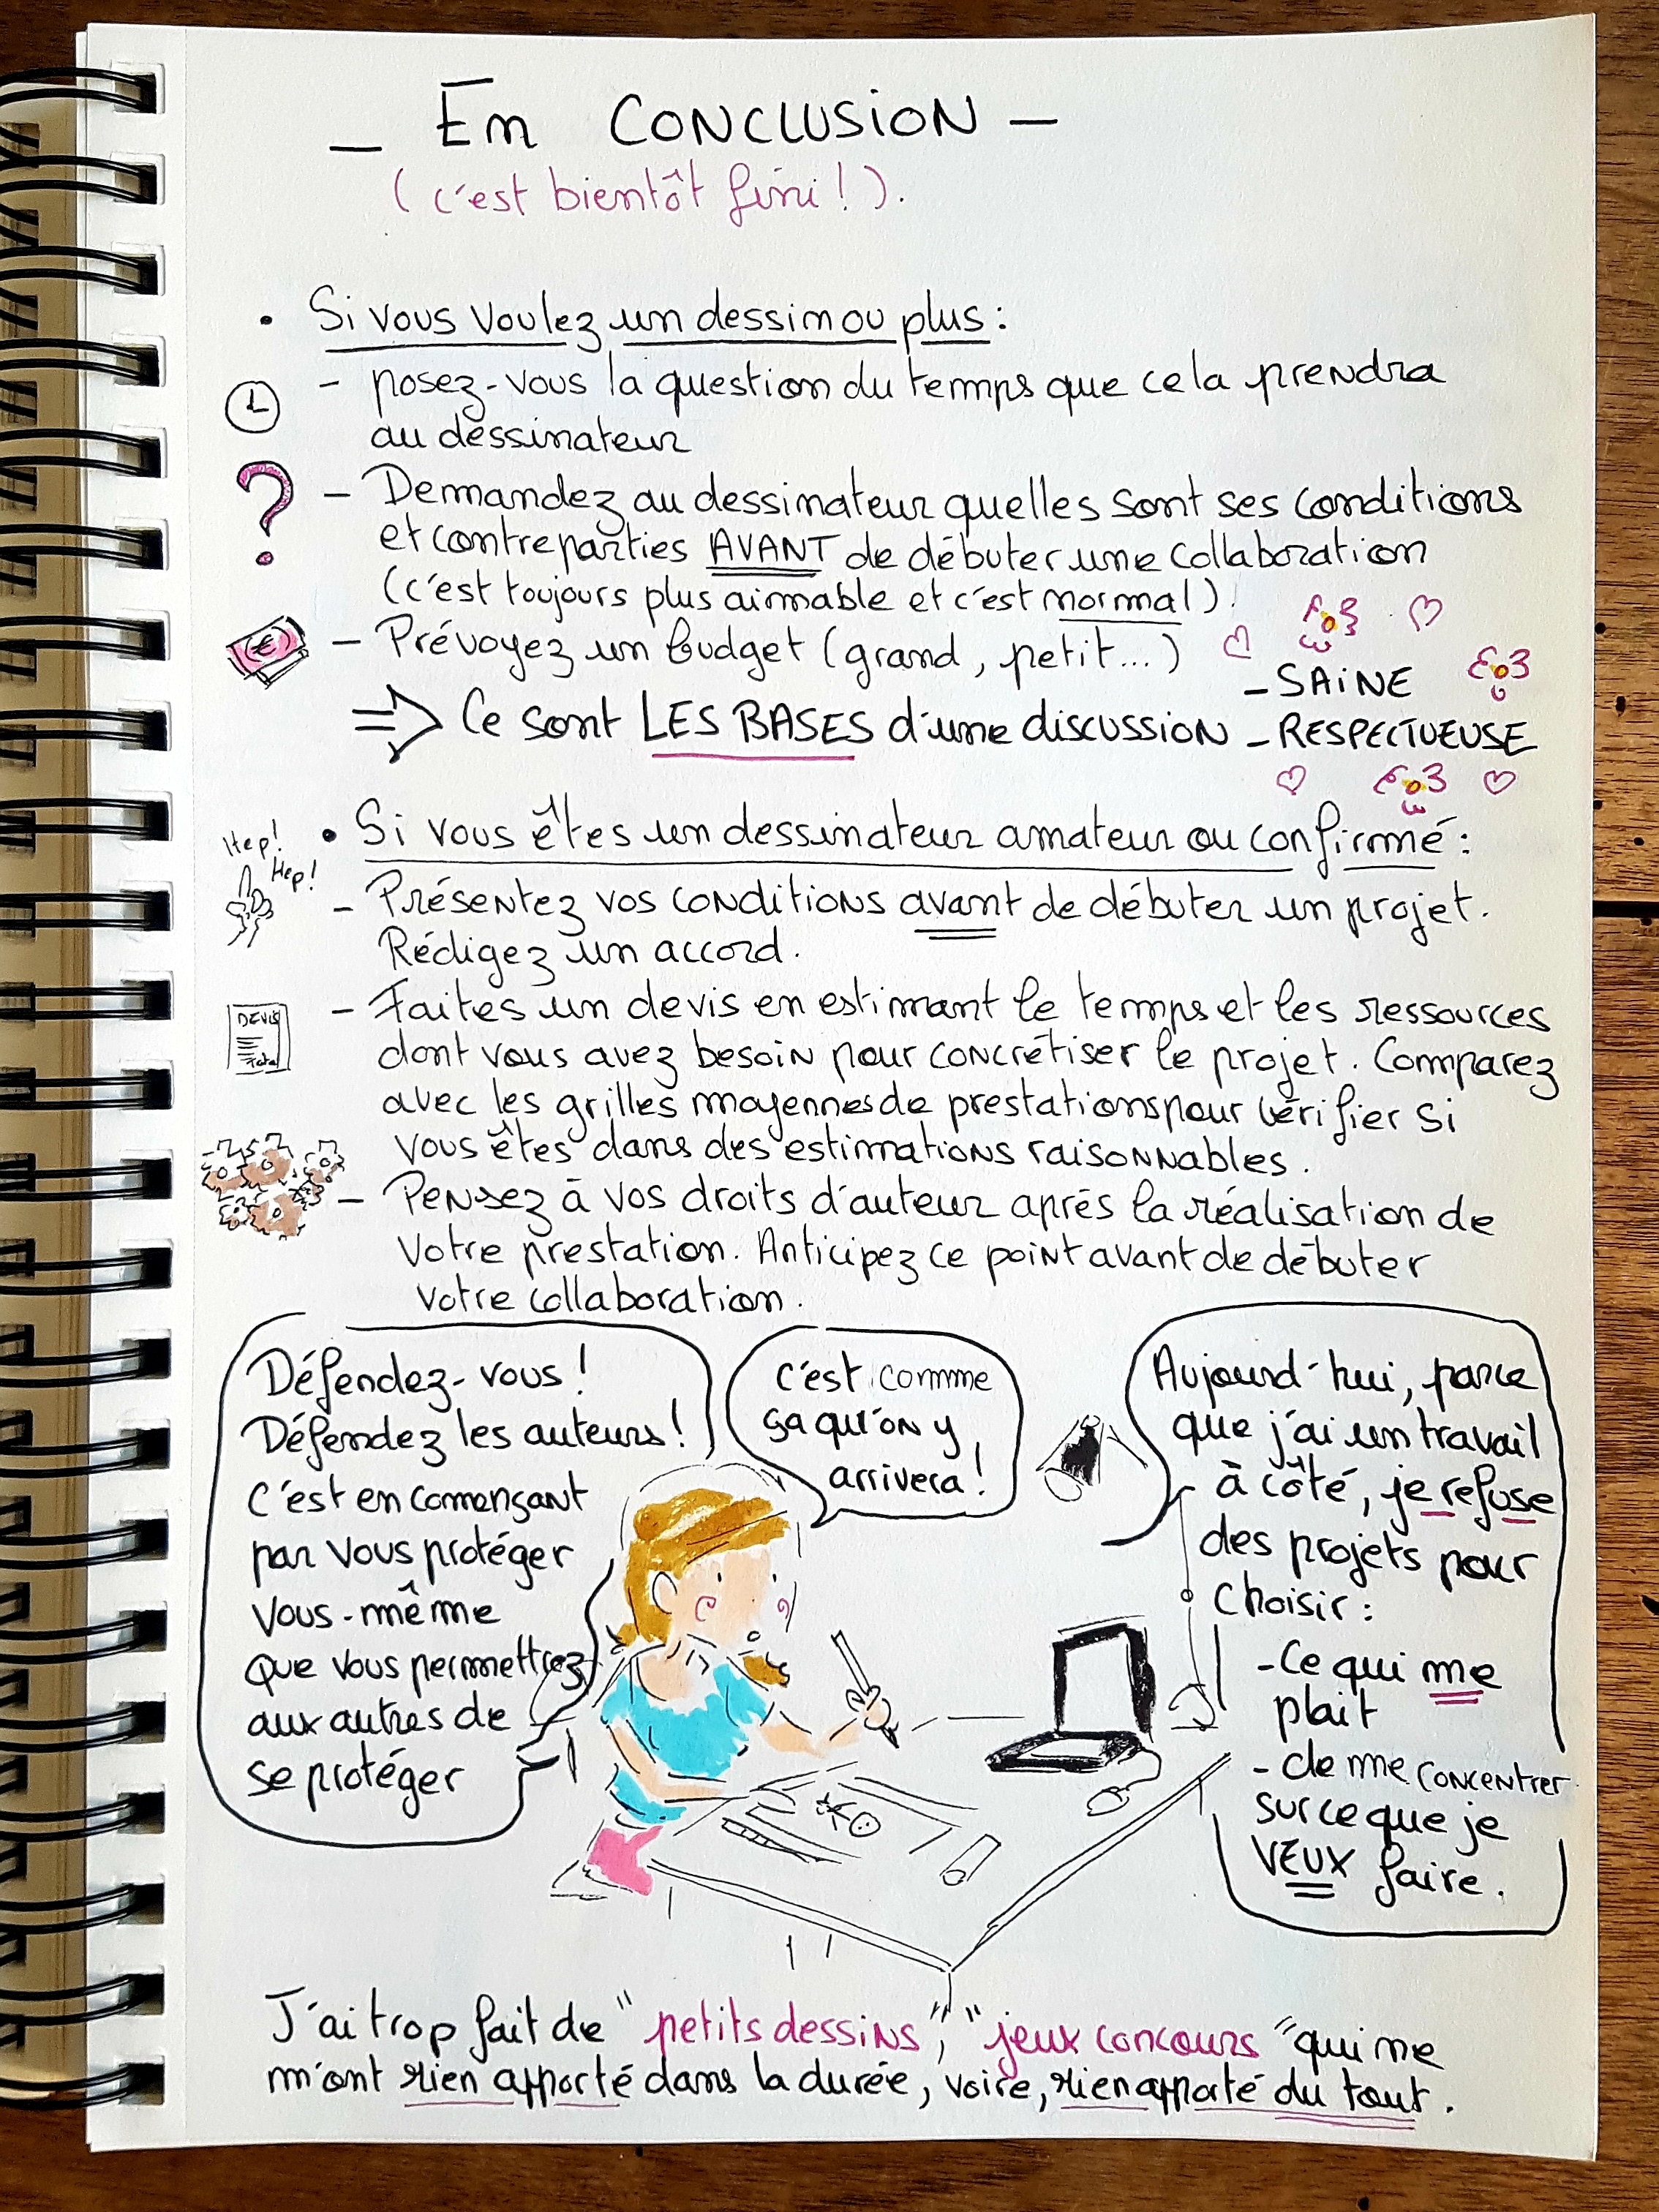 _ En CONCLUSION _
(c'est bientôt fini!).
• Si vous voulez un dessin ou plus :
- posez-vous la question du temps que cela prendra
au dessinateur
?
- Demandez au dessinateur quelles sont ses conditions
et contreparties AVANT de débuter une collaboration
(c'est toujours plus aimable et c'est normal).
€
- Prévoyez un budget (grand, petit...)
⇒ Ce sont LES BASES d'une discussion
- SAINE
- RESPECTUEUSE
Hep!
Hep!
• Si vous êtes un dessinateur amateur ou confirmé :
- Présentez vos conditions avant de débuter un projet.
Rédigez un accord.
DEVIS
Total
- Faites un devis en estimant le temps et les ressources
dont vous avez besoin pour concrétiser le projet. Comparez
avec les grilles moyennes de prestations pour vérifier si
vous êtes dans des estimations raisonnables.
- Pensez à vos droits d'auteur après la réalisation de
votre prestation. Anticipez ce point avant de débuter
votre collaboration.
Défendez-vous!
Défendez les auteurs!
C'est en començant
par vous protéger
vous-même
que vous permettrez
aux autres de
se protéger
C'est comme
ça qu'on y
arrivera!
Aujourd'hui, parce
que j'ai un travail
à côté, je refuse
des projets pour
choisir :
- Ce qui me
plait
- de me concentrer
sur ce que je
VEUX faire.
J'ai trop fait de "petits dessins", "jeux concours" qui ne
m'ont rien apporté dans la durée, voire, rien apporté du tout.